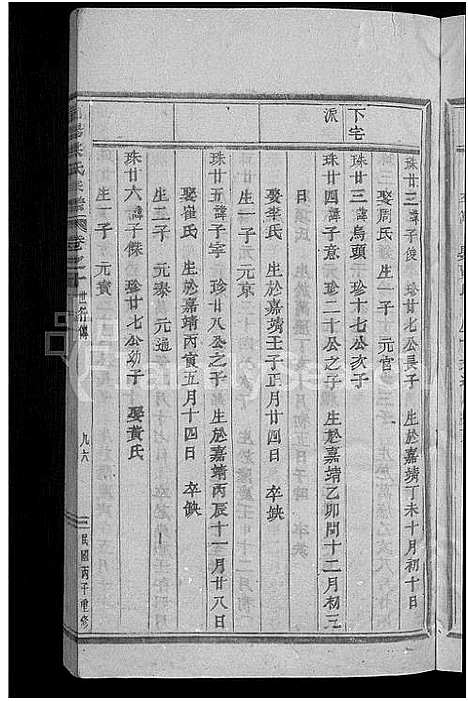 下宅
派
珠廿三諱子俊 珍廿七公長子 生於嘉靖丁未十月初十日
娶周氏 生一子 元官
珠廿三諱烏頭 珍十七公次子
珠廿四諱子意 珍二十公之子 生於嘉靖乙卯閏十二月初三
日
娶李氏 生於嘉靖壬子正月廿四日 卒缺
生一子 元京
珠廿五諱子寧 珍廿八公之子 生於嘉靖丙辰十一月廿八日
娶崔氏 生於嘉靖丙寅五月十四日 卒缺
生二子 元泰 元通
珠廿六諱子傑 珍廿七公幼子 娶黃氏
生一子 元寅
氏
卷之十
世行傳
九六
民國丙子重修